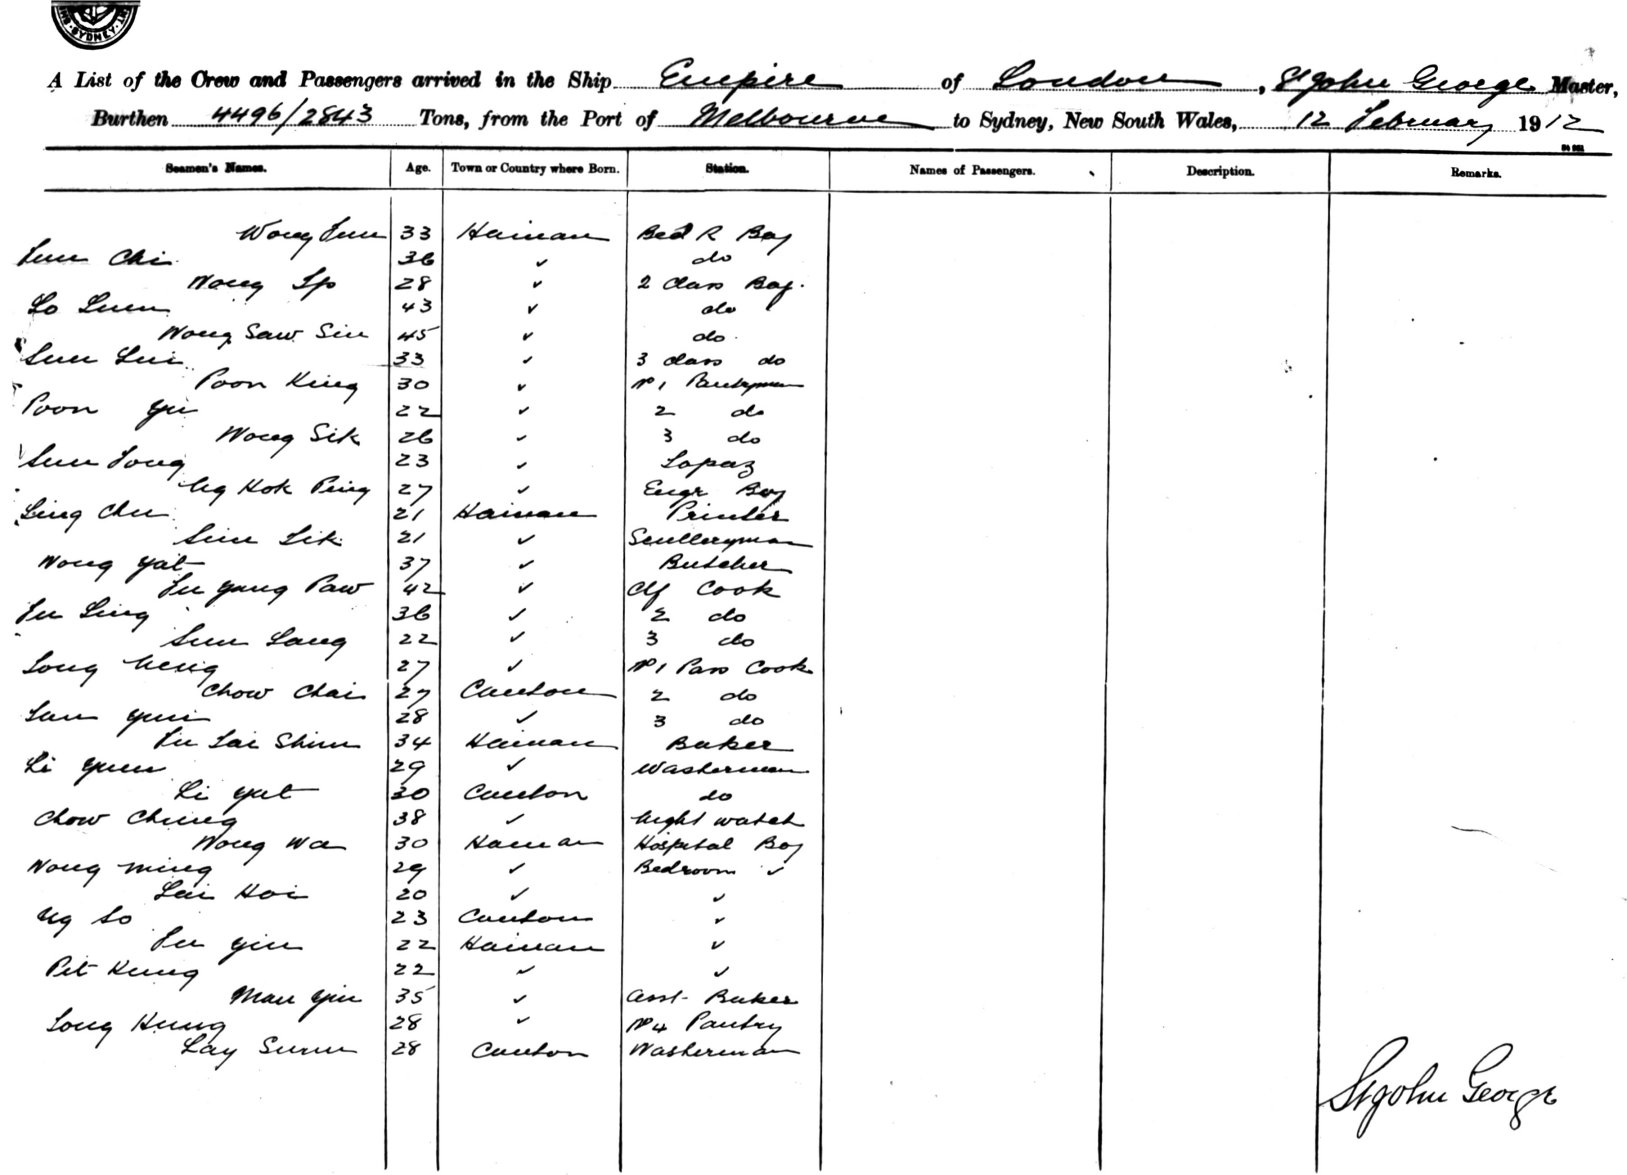 SYDNEY
A List of the Crew and Passengers arrived in the Ship Empire of London, St John George Master,
Burthen 4496/2843 Tons, from the Port of Melbourne to Sydney, New South Wales, 12 February 1912
Seamen's Names. Age. Town or Country where Born. Station. Names of Passengers. Description. Remarks.
Wong 33 Hainan Bed R Boy
Chi 36 ✓ do
Wong 28 ✓ 2 class Boy.
Lo 43 ✓ do
Wong Saw Sin 45 ✓ do.
33 ✓ 3 class do
Poon King 30 ✓ No 1 Pantryman
Poon Yu 22 ✓ 2 do
Wong Sik 26 ✓ 3 do
23 ✓ Lopaz
Ng Kok Ping 27 ✓ Engr Boy
Ling Chu 21 Hainan Printer
21 ✓ Sculleryman
Wong Yat 37 ✓ Butcher
Fu Yang Paw 42 ✓ Chf Cook
Fu Ling 36 ✓ 2 do
22 ✓ 3 do
27 ✓ No 1 Pass Cook
Chow Chai 27 Canton 2 do
28 ✓ 3 do
34 Hainan Baker
Li Yuen 29 ✓ Washerman
Li Yat 30 Canton do
Chow Chung 38 ✓ Night watch
Wong Wa 30 Hainan Hospital Boy
Wong Ming 29 ✓ Bedroom ✓
Hoi 20 ✓ ✓
Ng So 23 Canton ✓
22 Hainan ✓
Pit Kung 22 ✓ ✓
Man Yin 35 ✓ Asst. Baker
28 ✓ No 4 Pantry
Lay 28 Canton Washerman
St John George